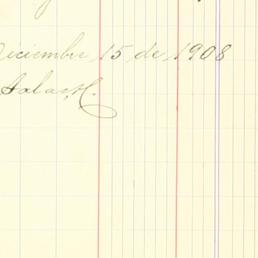 Diciembre 15 de 1908
Salas H.